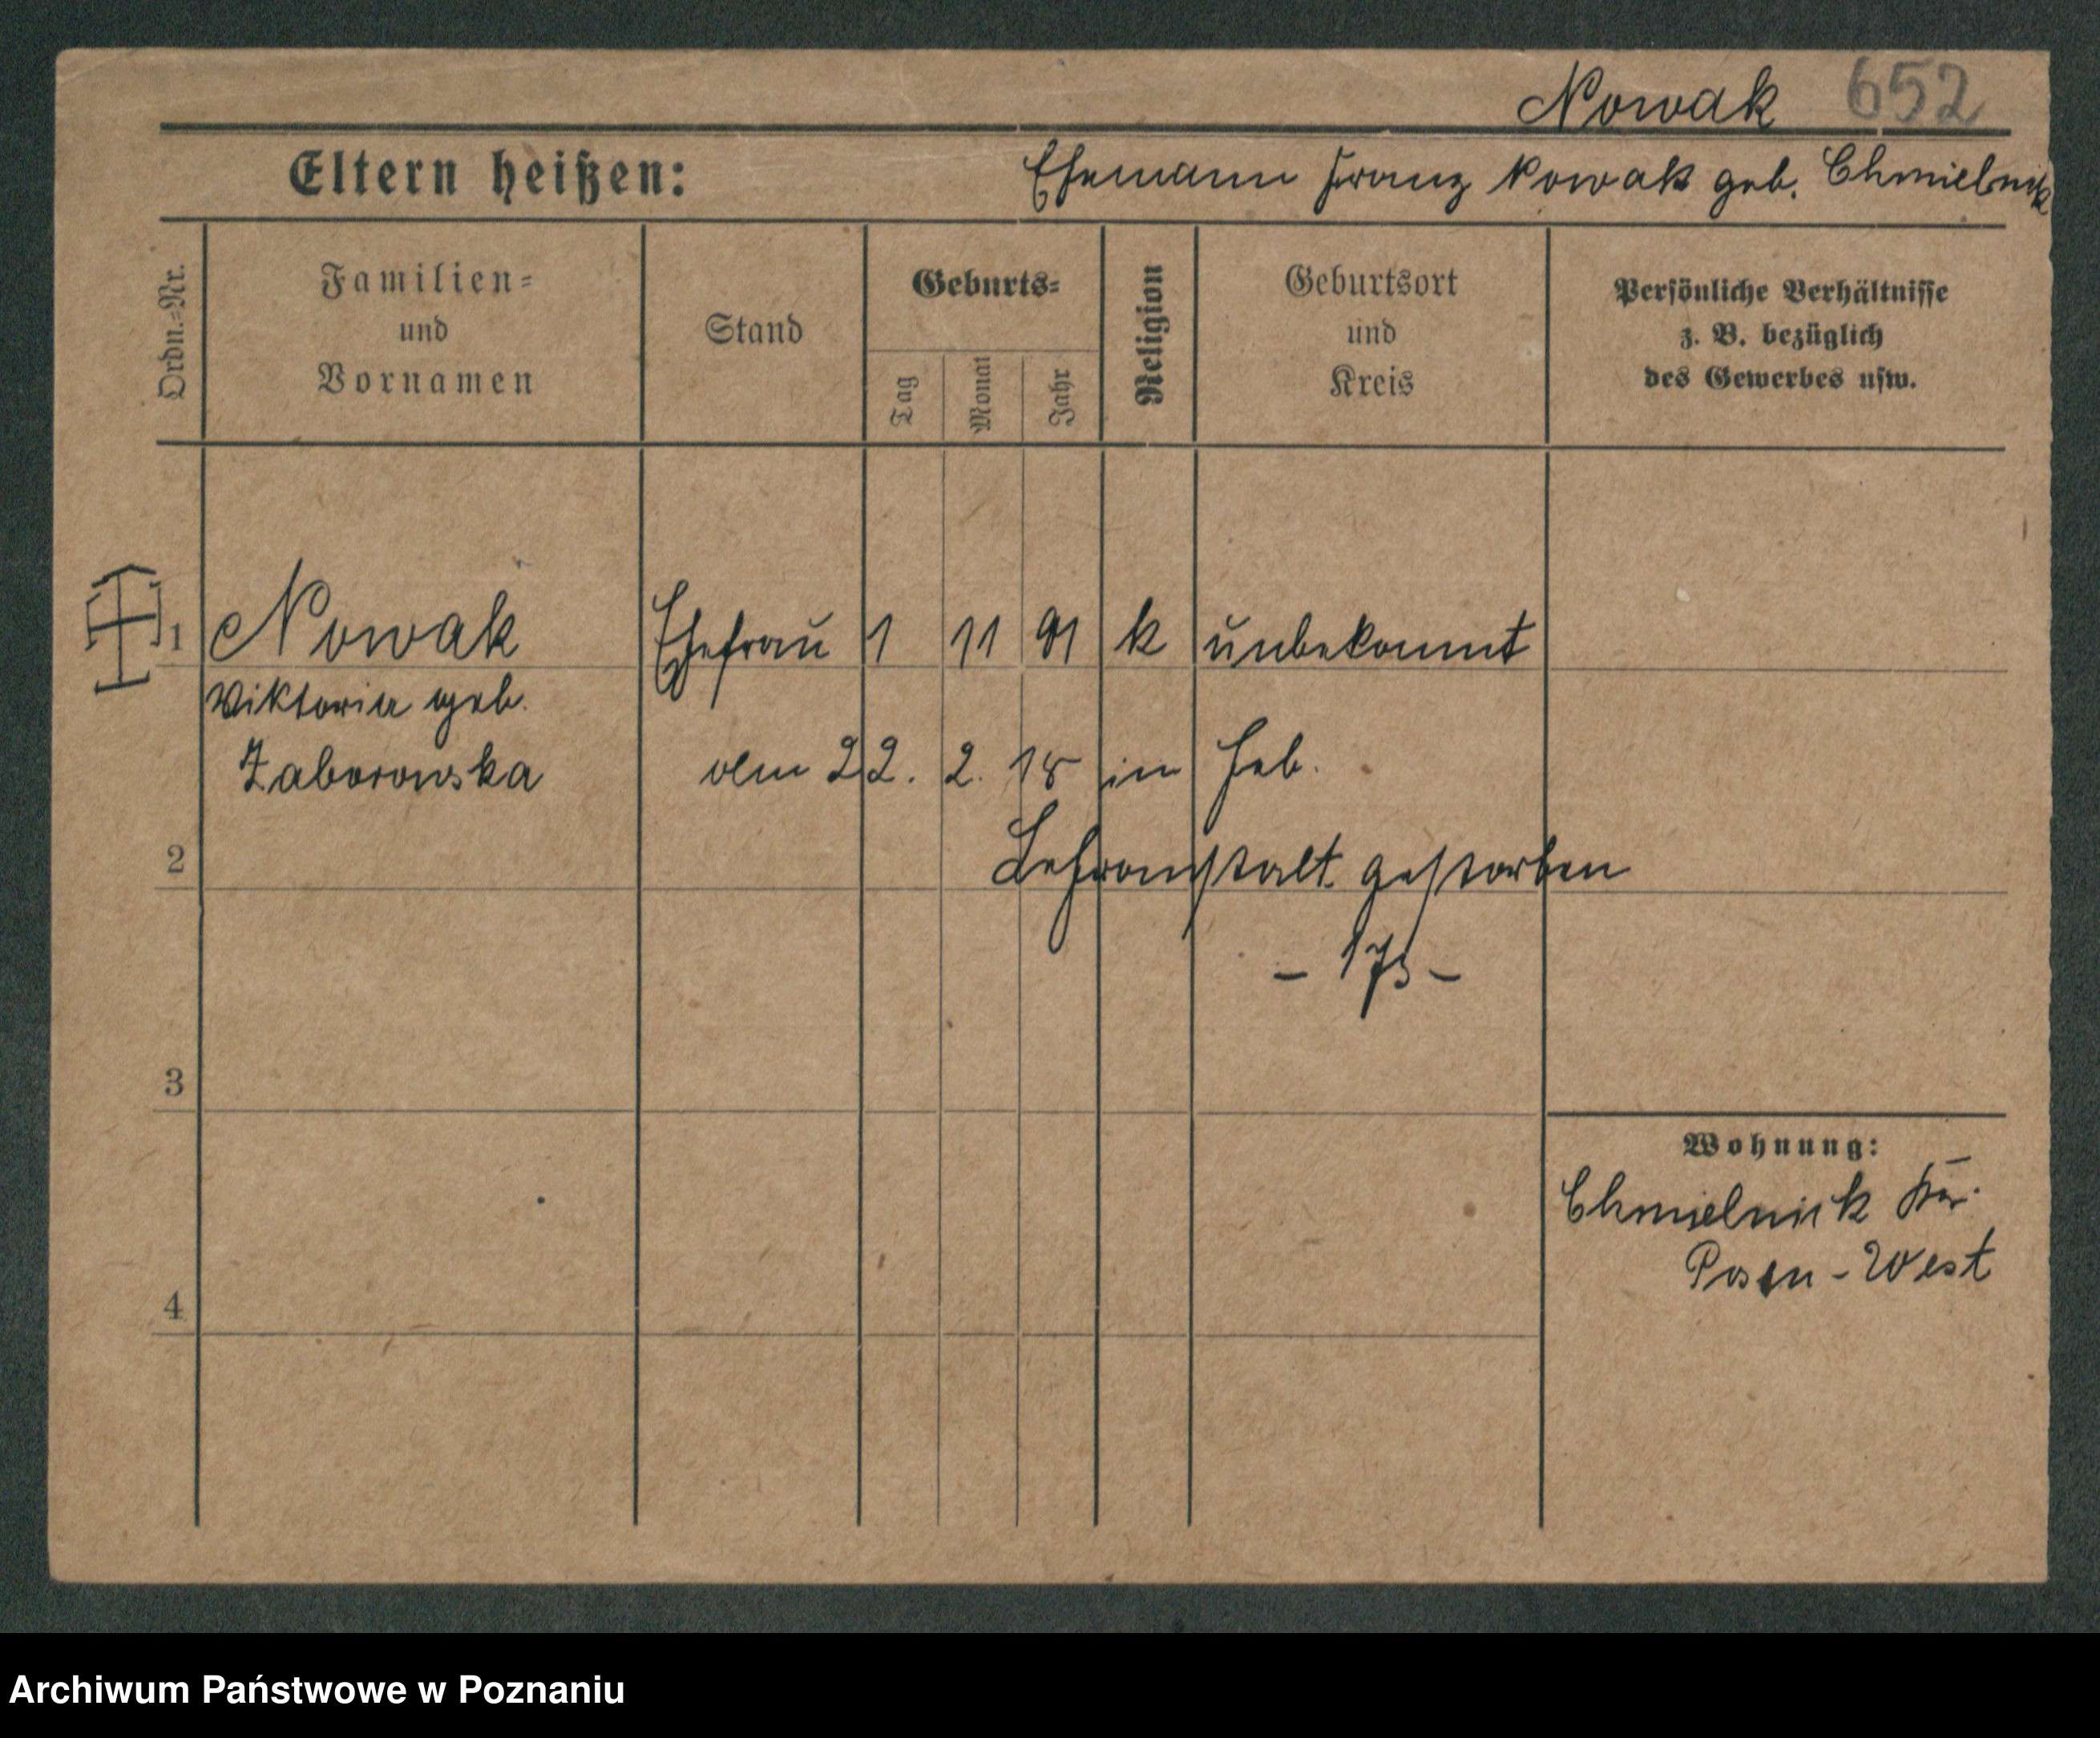 Nowak 652
Eltern heißen: Ehemann Franz Nowak geb. Chmielnik
Ordn.=Nr.
Familien=
und
Vornamen
Stand
Geburts=
Tag
Monat
Jahr
Religion
Geburtsort
und
Kreis
Persönliche Verhältnisse
z. B. bezüglich
des Gewerbes usw.
1 Nowak Ehefrau 1 11 91 k unbekannt
Viktoria geb.
Zaborowska am 22. 2. 18 in Heb.
2 Lehranstalt gestorben
- 173 -
3
Wohnung:
Chmielnik Kr.
Posen-West
4
Archiwum Państwowe w Poznaniu